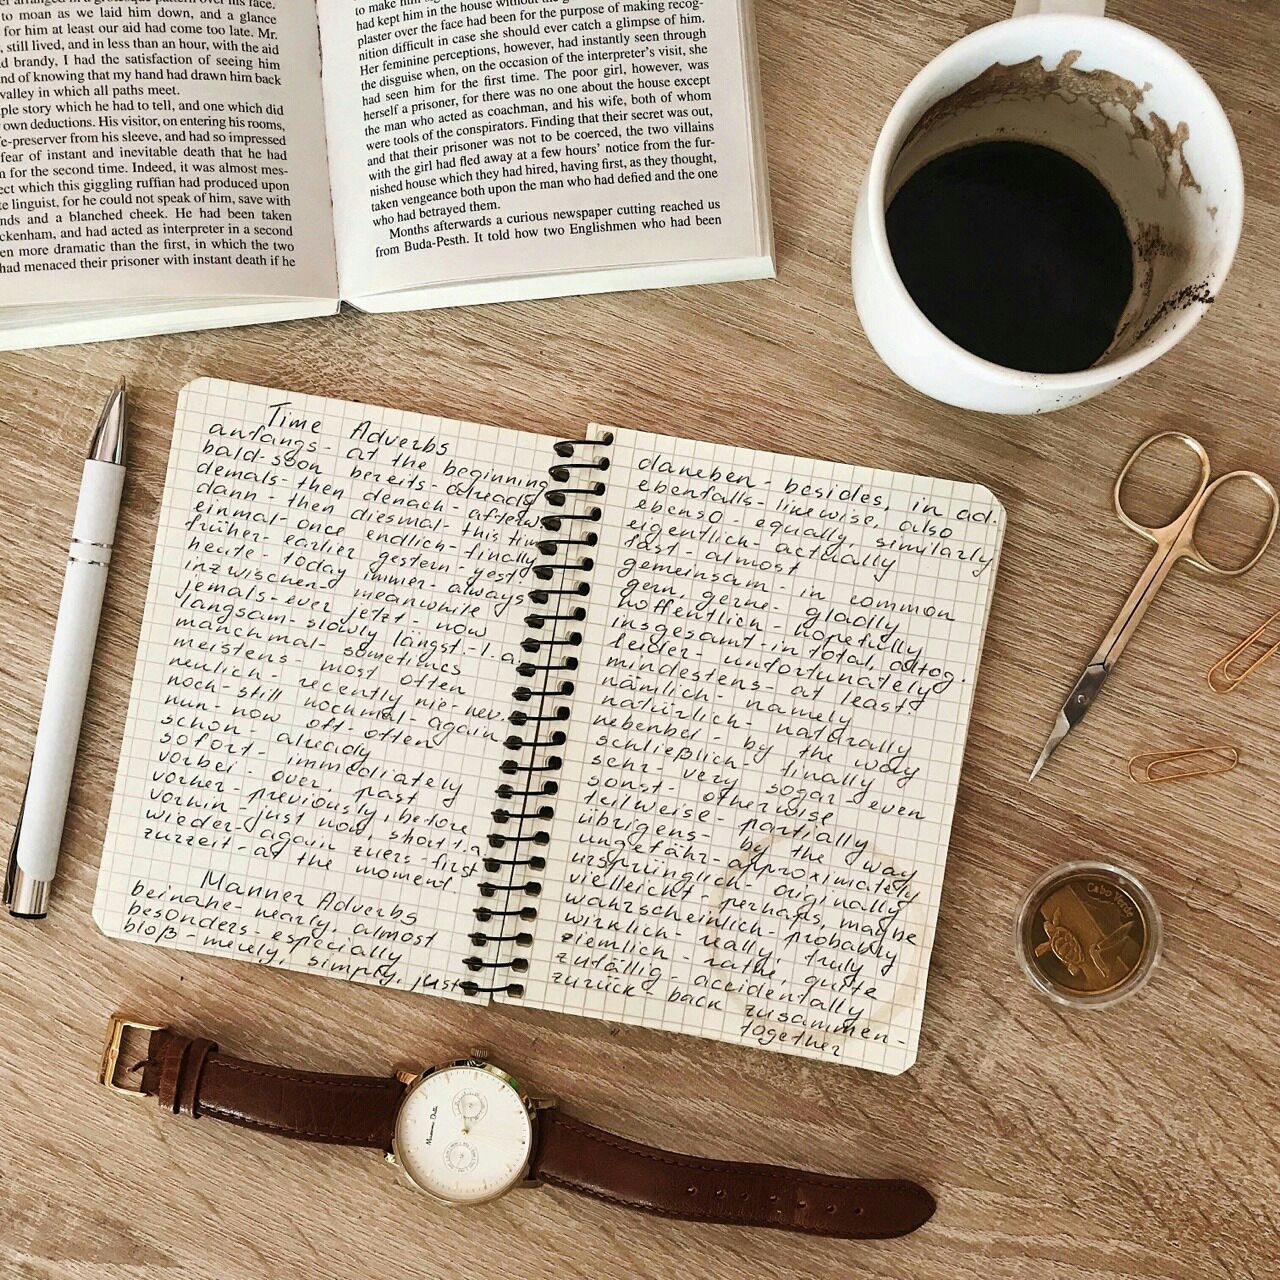 to moan as we laid him down, and a glance
for him at least our aid had come too late. Mr.
still lived, and in less than an hour, with the aid
brandy, I had the satisfaction of seeing him
of knowing that my hand had drawn him back
valley in which all paths meet.
story which he had to tell, and one which did
own deductions. His visitor, on entering his rooms,
-preserver from his sleeve, and had so impressed
fear of instant and inevitable death that he had
for the second time. Indeed, it was almost mes-
which this giggling ruffian had produced upon
linguist, for he could not speak of him, save with
and a blanched cheek. He had been taken
and had acted as interpreter in a second
more dramatic than the first, in which the two
had menaced their prisoner with instant death if he
had kept him in the house without the
plaster over the face had been for the purpose of making recog-
nition difficult in case she should ever catch a glimpse of him.
Her feminine perceptions, however, had instantly seen through
the disguise when, on the occasion of the interpreter's visit, she
had seen him for the first time. The poor girl, however, was
herself a prisoner, for there was no one about the house except
the man who acted as coachman, and his wife, both of whom
were tools of the conspirators. Finding that their secret was out,
and that their prisoner was not to be coerced, the two villains
with the girl had fled away at a few hours' notice from the fur-
nished house which they had hired, having first, as they thought,
taken vengeance both upon the man who had defied and the one
who had betrayed them.
Months afterwards a curious newspaper cutting reached us
from Buda-Pesth. It told how two Englishmen who had been
Time Adverbs
anfangs - at the beginning
bald - soon bereits - already
demals - then denach - afterw
dann - then diesmal - this tim
einmal - once endlich - finally
früher - earlier gestern - yest.
heute - today immer - always
inzwischen - meanwhile
jemals - ever jetzt - now
langsam - slowly längst - l. a
manchmal - sometimes
meistens - most often
neulich - recently nie - nev.
noch - still nochmal - again
nun - now oft - often
schon - already
sofort - immediately
vorbei - over, past
vorher - previously, before
vorhin - just now, short t. a
wieder - again zuers - first
zurzeit - at the moment
Manner Adverbs
beinahe - nearly, almost
besonders - especially
bloß - merely, simply, just
daneben - besides, in ad.
ebenfalls - likewise, also
ebenso - equally, similarly
eigentlich - actually
fast - almost
gemeinsam - in common
gern, gerne - gladly
hoffentlich - hopefully
insgesamt - in total, altog.
leider - unfortunately
mindestens - at least
nämlich - namely
natürlich - naturally
nebenbei - by the way
schließlich - finally
sehr - very sogar - even
sonst - otherwise
teilweise - partially
übrigens - by the way
ungefähr - approximately
ursprünglich - originally
vielleicht - perhaps, maybe
wahrscheinlich - probably
wirklich - really, truly
ziemlich - rathe, quite
zufällig - accidentally
zurück - back zusammen -
together
Cabo Verde
Massimo Dutti